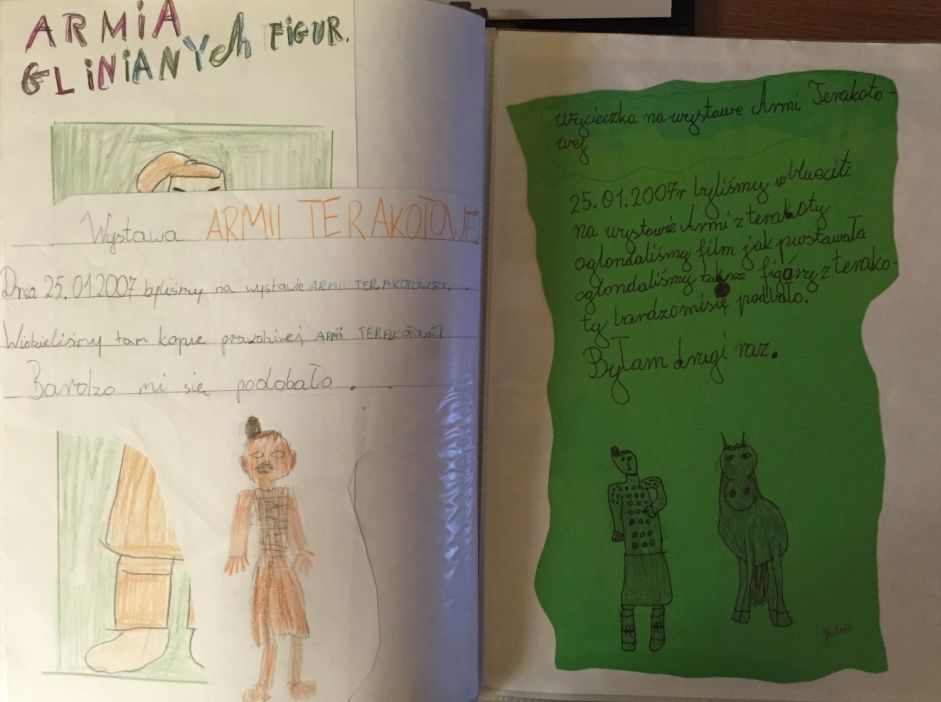 ARMIA
GLINIANYCH FIGUR.
Wystawa ARMII TERAKOTOWE
Dnia 25.01.2007 byliśmy na wystawie ARMII TERAKOTOWEJ.
Widzieliśmy tam kopie prawdziwej ARMI TERAKOTOWEJ
Bardzo mi się podobało.
Wycieczka na wystawę Armi Terakoto-
wej
25.01.2007r byliśmy w
na wystawie Armi z terakoty
oglondaliśmy film jak powstawała
oglondaliśmy także figóry z terako-
ty bardzomisię podbało.
Byłam drugi raz.
Julia